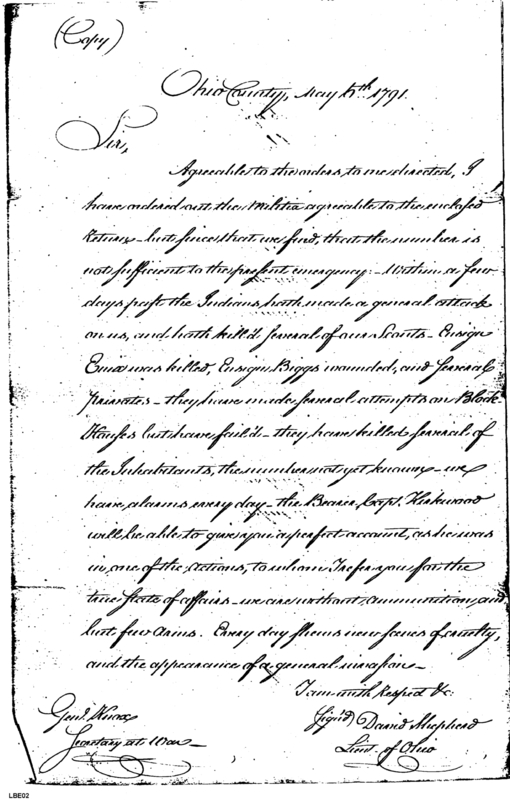 (Copy)
Ohio County, May 5th 1791.
Sir,
Agreeable to the orders, to me directed, I
have ordered out the Militia agreeable to the enclosed
Return - but since that we find, that the number is
not sufficient to the present emergency - Within a few
days past the Indians hath made a general attack
on us, and hath kill'd several of our Scouts - Ensign
was killed, Ensign Biggs wounded, and several
privates - they have made several attempts on Block
Houses but have fail'd - they have killed several of
the Inhabitants, the number not yet known - we
have alarms every day - the Bearer, Capt. Kirkwood
will be able to give you a perfect account, as he was
in one of the actions, to whom I refer you for the
true State of affairs - we are without ammunition, and
but few arms. Every day shews new of cruelty,
and the appearance of a general invasion -
I am with Respect &c:
Sign'd David Shepherd
Lieut. of Ohio
Genl. Knox
Secretary at War -
LBE02